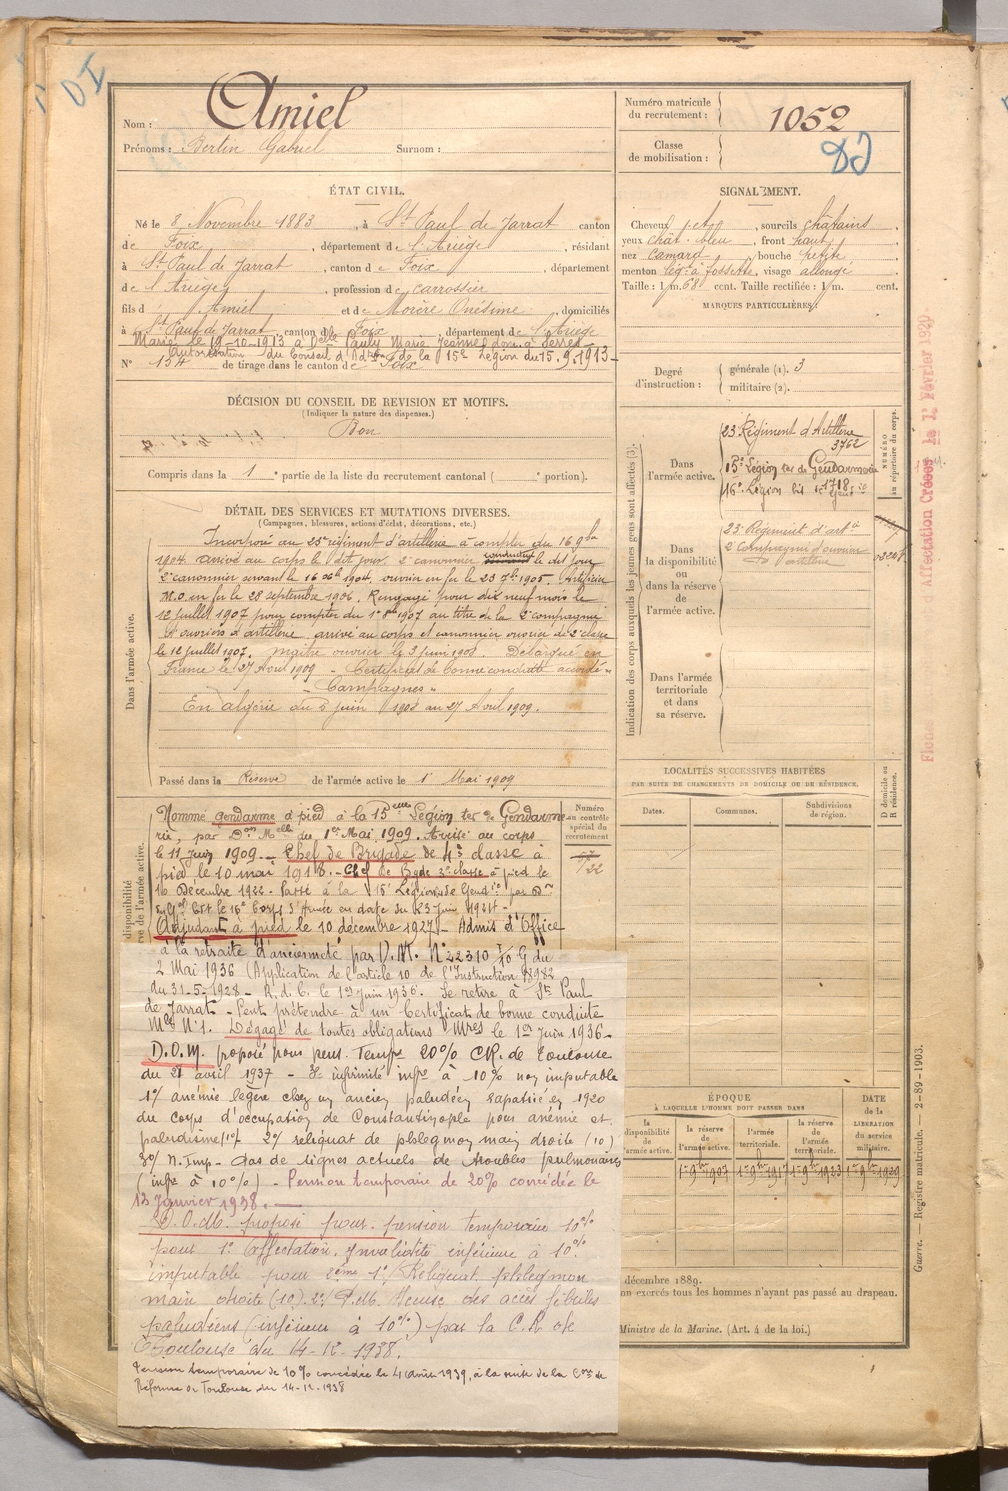 Nom : Amiel
Prénoms : Bertin Gabriel Surnom :
Numéro matricule du recrutement : 1052
Classe de mobilisation :
ÉTAT CIVIL.
Né le 8 Novembre 1883, à St Paul de Jarrat canton
de Foix, département de l'Ariège, résidant
à St Paul de Jarrat, canton de Foix, département
de l'Ariège, profession de carrossier
fils d Amiel et de Onésime, domiciliés
à St Paul de Jarrat, canton de Foix, département de l'Ariège
Marié le 19-10-1913 à Delle Pauly Marie Jeanne dom. à Serres
Autorisation du Conseil d'Adon de la 15e Légion du 15.9.1913
N° 154 de tirage dans le canton de Foix
SIGNALEMENT.
Cheveux , sourcils châtains
yeux chât. bleu, front haut
nez camard, bouche petite
menton à fossette, visage allongé
Taille : 1 m. 68 cent. Taille rectifiée : 1 m. cent.
MARQUES PARTICULIÈRES
Degré d'instruction : générale (1). 3
militaire (2).
DÉCISION DU CONSEIL DE REVISION ET MOTIFS.
(Indiquer la nature des dispenses.)
Bon
Compris dans la 1e partie de la liste du recrutement cantonal ( e portion).
DÉTAIL DES SERVICES ET MUTATIONS DIVERSES.
(Campagnes, blessures, actions d'éclat, décorations, etc.)
Dans l'armée active.
Incorporé au 23e régiment d'artillerie à compter du 16 9bre
1904 arrivé au corps le dit jour 2e canonnier conducteur le dit jour
2e canonnier servant le 1904, ouvrier en fer le 23 7bre 1905. Artificier
M.O. en fer le 28 septembre 1906. Rengagé pour dix neuf mois le
12 juillet 1907 pour compter du 1907 au titre de la 2e compagnie
d'ouvriers d'artillerie arrivé au corps et canonnier ouvrier de 2e classe
le 12 juillet 1907. maître ouvrier le 3 juin 1908. Débarqué en
France le 27 Avril 1909 - Certificat de bonne conduite accordé
"Campagnes"
En Algérie du 5 juin 1908 au 27 Avril 1909.
Passé dans la Réserve de l'armée active le 1er Mai 1909
Indication des corps auxquels les jeunes gens sont affectés (3).
NUMÉRO au répertoire du corps.
Dans l'armée active.
23e Régiment d'Artillerie
3762
15e Légion ter de Gendarmerie
1718
16e Légion bis
Dans la disponibilité ou dans la réserve de l'armée active.
23e Régiment d'art
2e compagnie d'ouvriers
d'artillerie
Dans l'armée territoriale et dans sa réserve.
LOCALITÉS SUCCESSIVES HABITÉES
PAR SUITE DE CHANGEMENTS DE DOMICILE OU DE RÉSIDENCE.
Dates. Communes. Subdivisions de région. D domicile ou R résidence.
Numéro au contrôle spécial du recrutement
Nommé gendarme à pied à la 15eme Légion ter de Gendarme-
rie, par Don Melle du 1er Mai 1909. Arrivé au corps
le 11 Juin 1909. - Chef de Brigade de 4e classe à
pied le 10 mai 1918. - Chef de Bgde 3e classe à pied le
16 Décembre 1922. Passé à la 15 Légion de Gendie par Don
le 16e Corps d'Armée en date du 23 Juin
Adjudant à pied le 10 décembre 1927 - Admis d'Office
à la retraite d'ancienneté par D.M. N° 22310 du
2 Mai 1936 (Application de l'article 10 de l'Instruction
du 31-5-1928 - R.d.C. le 1er Juin 1936. Se retire à St Paul
de Jarrat. - Peut prétendre à un Certificat de bonne conduite
Mle N°1. Dégagé de toutes obligations Mres le 1er Juin 1936 -
D.O.M. proposé pour pens. Tempe 20% CR. de Toulouse
du 21 avril 1937 - infirmité infre à 10% non imputable
1°/ anémie légère chez un ancien paludéen rapatrié en 1920
du corps d'occupation de Constantinople pour anémie et
paludisme 2°/ reliquat de phlegmon main droite (10)
3°/ N. Imp - Pas de signes actuels de troubles pulmonaires
(infre à 10%) - Pension temporaire de 20% concédée le
13 Janvier 1938. -
D.O.M. proposé pour pension temporaire 10%
pour 1e affectation. Invalidité inférieure à 10%
imputable pour 2eme 1°/ Reliquat phlegmon
main droite (10). 2°/ Accuse des accès fébriles
paludéens (inférieur à 10%) par la C.R de
Toulouse du 14-12-1938.
Pension temporaire de 10% concédée le 4 Août 1939, à la suite de la Cion de
Réforme de Toulouse du 14-12-1938
ÉPOQUE
À LAQUELLE L'HOMME DOIT PASSER DANS
la disponibilité de l'armée active. la réserve de l'armée active. l'armée territoriale. la réserve de l'armée territoriale.
DATE de la LIBÉRATION du service militaire.
1er 9bre 1907 1er 9bre 1917 1er 9bre 1923 1er 9bre 1929
décembre 1889.
non exercés tous les hommes n'ayant pas passé au drapeau.
Ministre de la Marine. (Art. 4 de la loi.)
Guerre. — Registre matricule. — 2-89-1903.
d'Affectation Créées le 1er Février 1920.